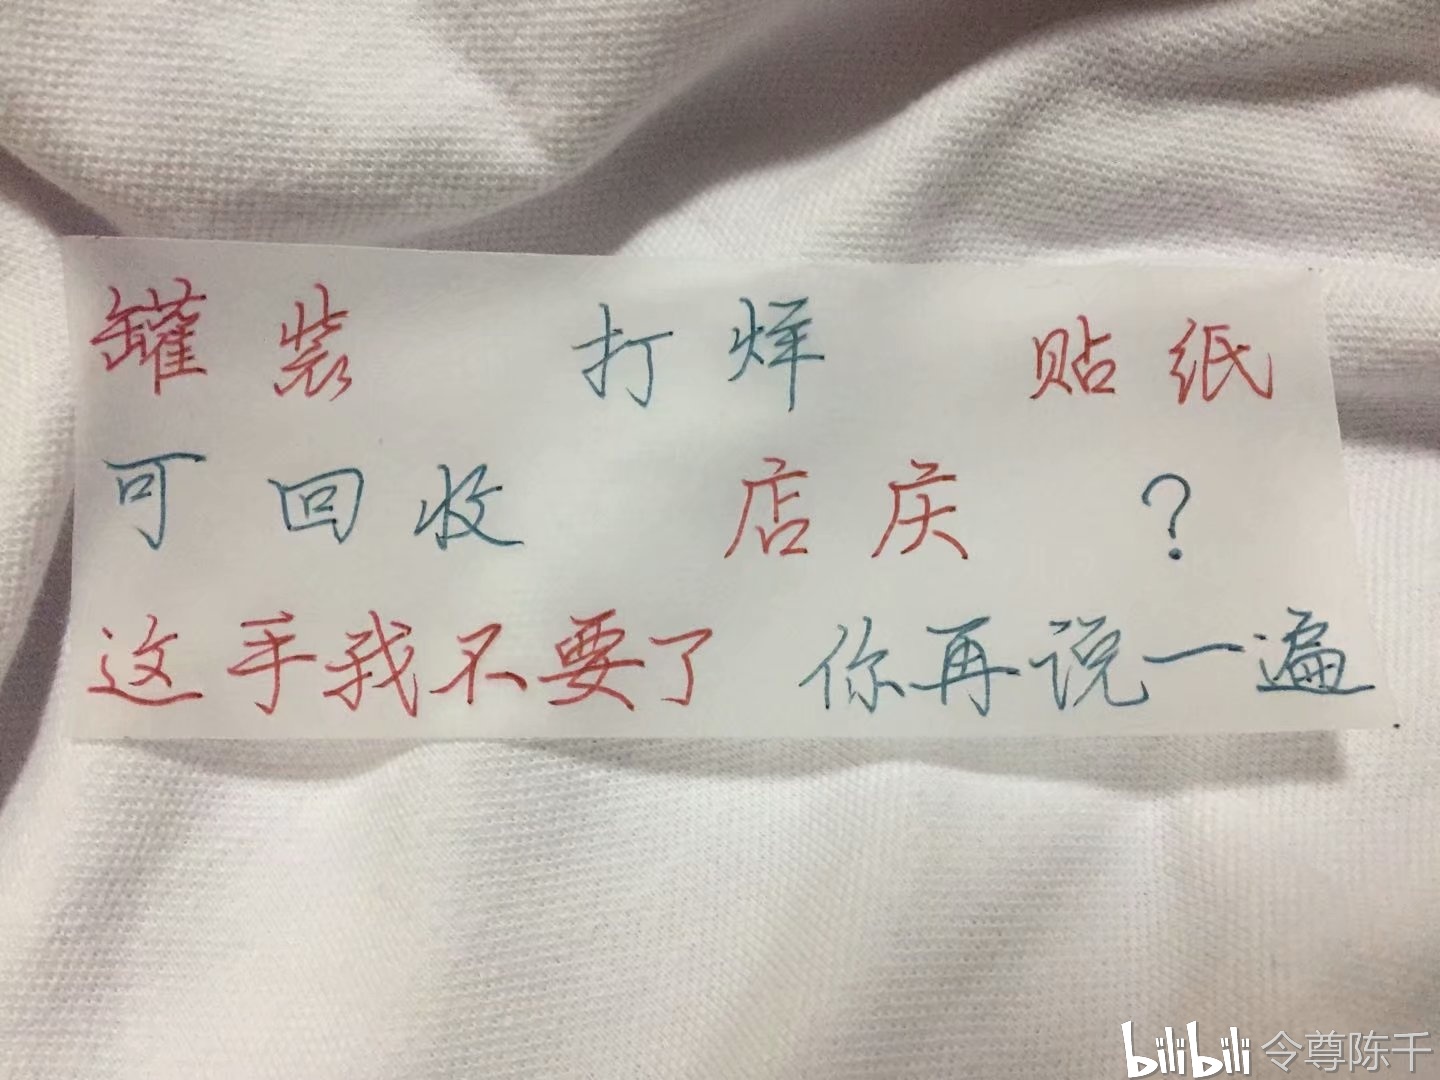 罐装 打烊 贴纸
可回收 店庆 ?
这手我不要了 你再说一遍
bilibili 令尊陈千